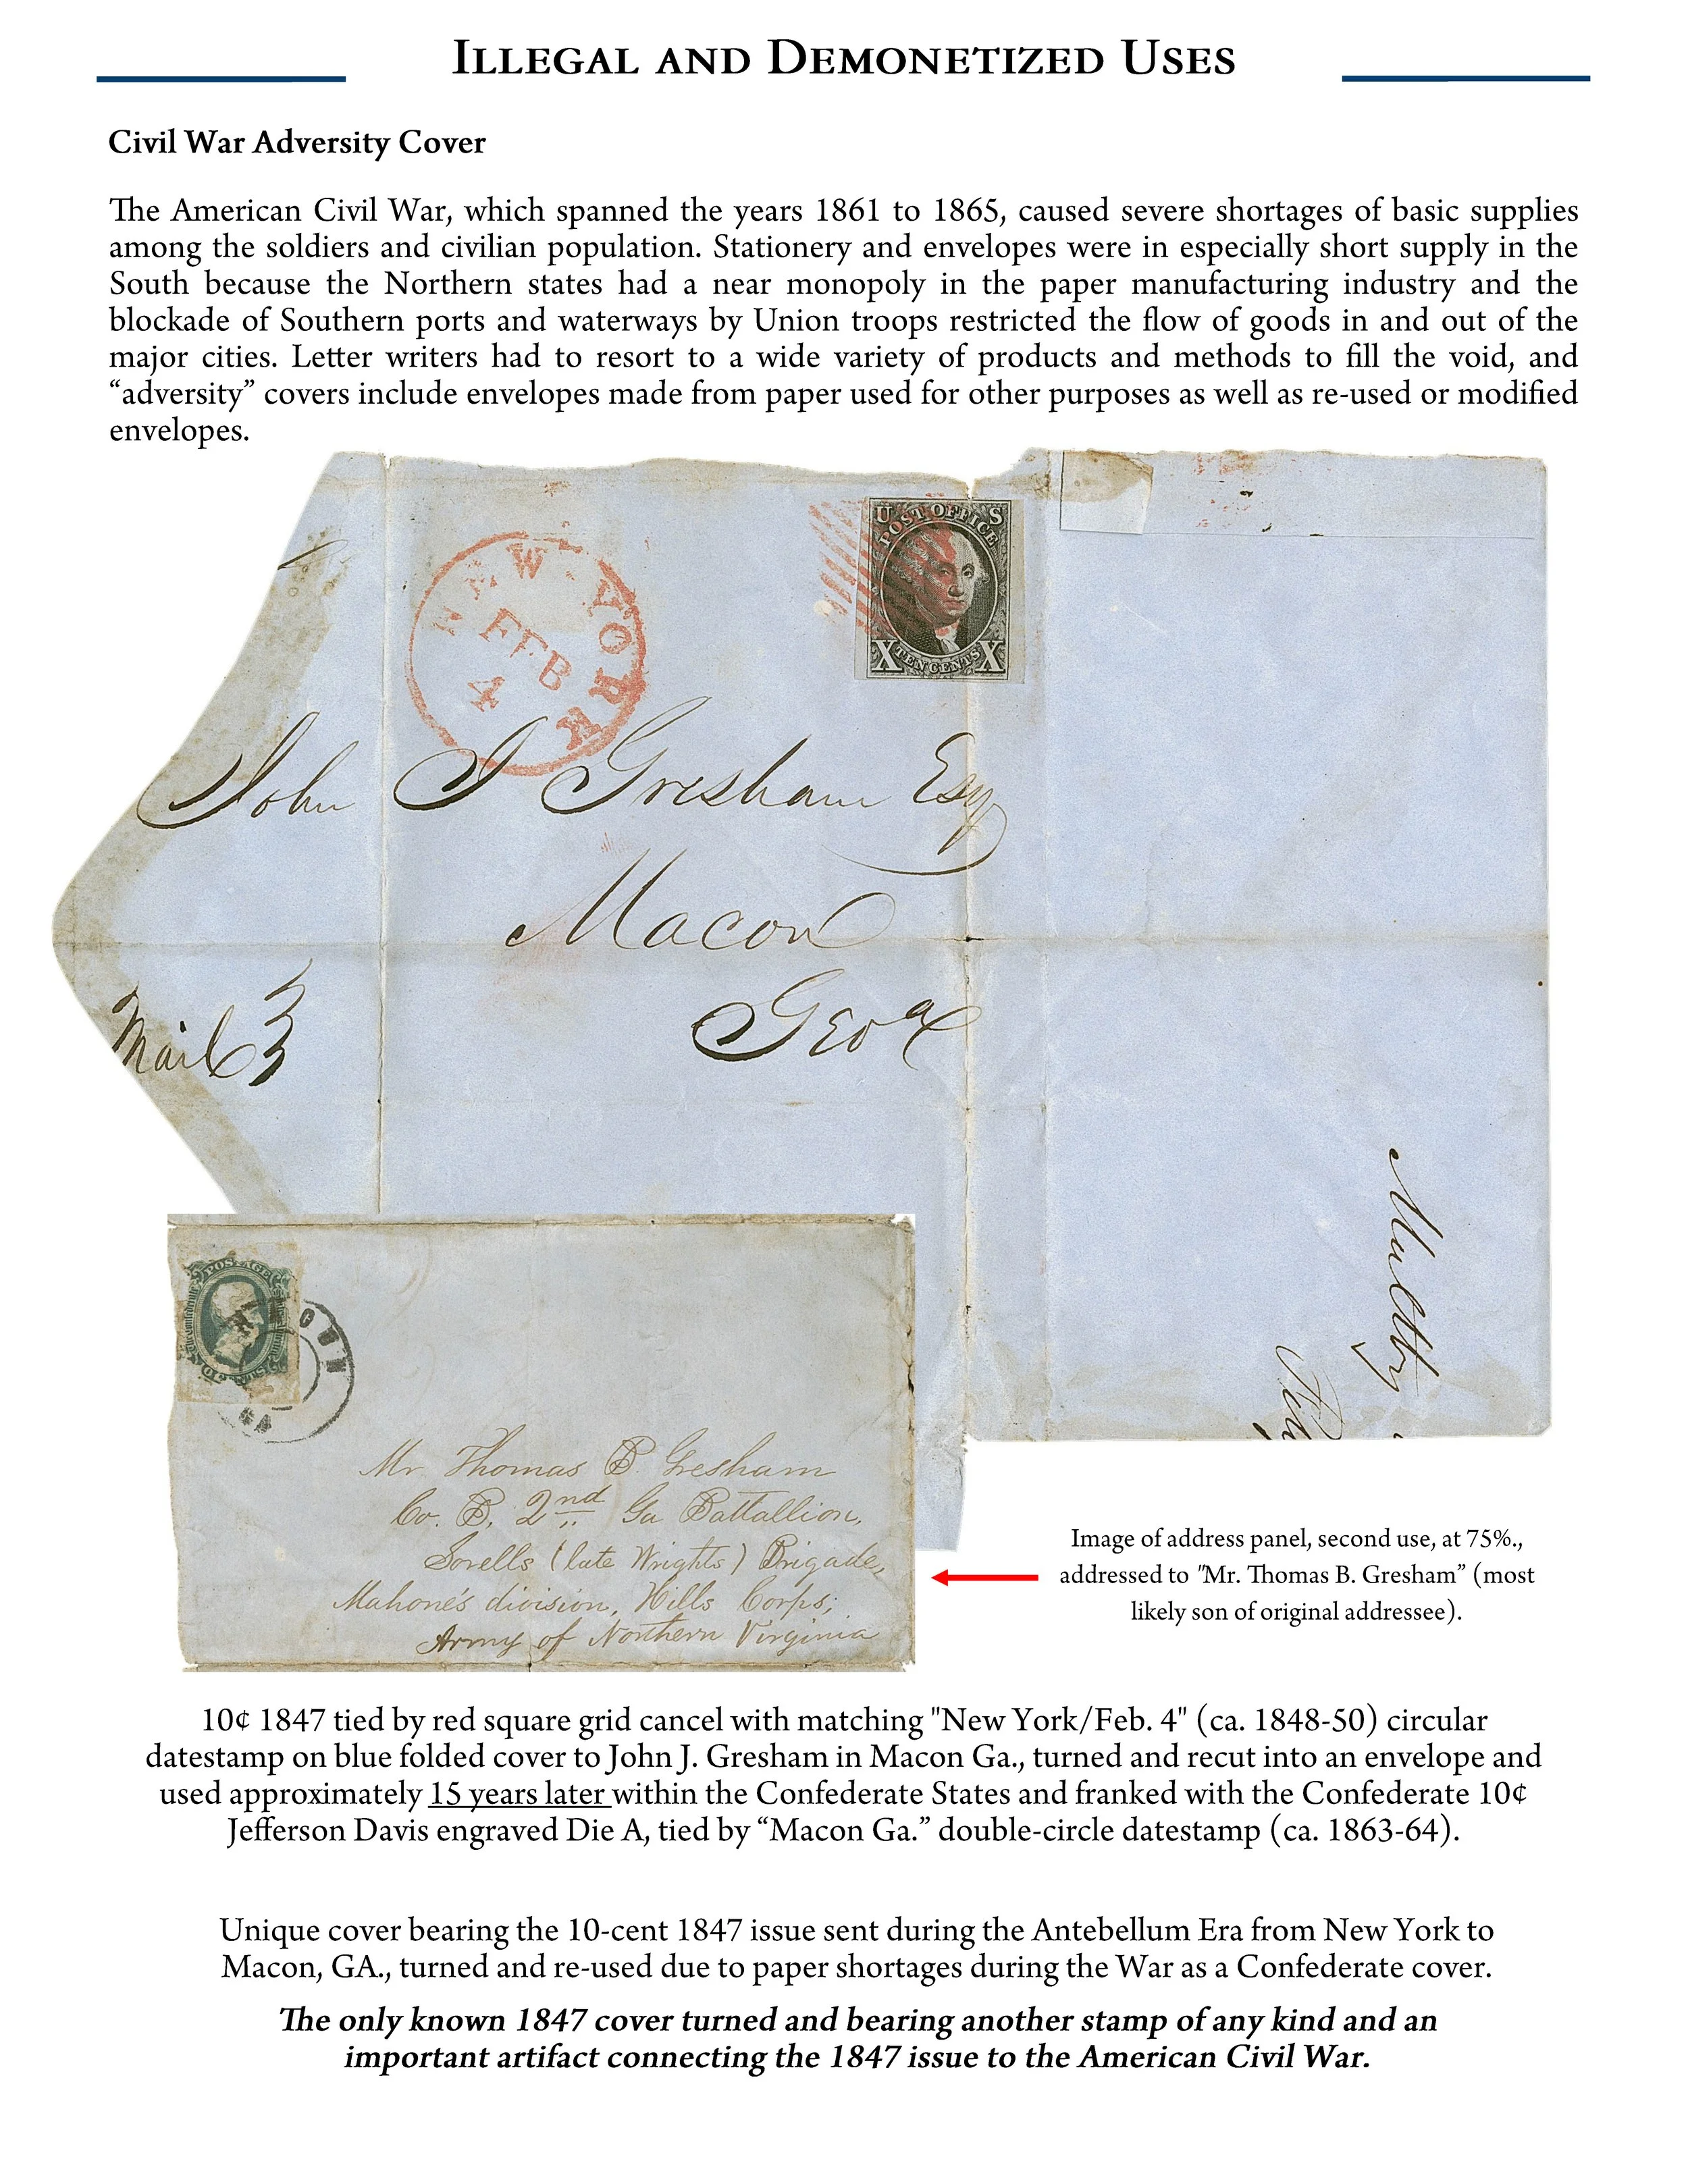 ILLEGAL AND DEMONETIZED USES
Civil War Adversity Cover
The American Civil War, which spanned the years 1861 to 1865, caused severe shortages of basic supplies
among the soldiers and civilian population. Stationery and envelopes were in especially short supply in the
South because the Northern states had a near monopoly in the paper manufacturing industry and the
blockade of Southern ports and waterways by Union troops restricted the flow of goods in and out of the
major cities. Letter writers had to resort to a wide variety of products and methods to fill the void, and
“adversity” covers include envelopes made from paper used for other purposes as well as re-used or modified
envelopes.
NEW-YORK
FEB
4
U S
POST OFFICE
X TEN CENTS X
John J Gresham Esq
Macon
Geoa
Mail
POSTAGE
GA
Mr Thomas B. Gresham
Co. B, 2nd Ga Battallion,
Sorells (late Wrights) Brigade,
Mahone's division, Hills Corps;
Army of Northern Virginia
Image of address panel, second use, at 75%.,
addressed to "Mr. Thomas B. Gresham” (most
likely son of original addressee).
10¢ 1847 tied by red square grid cancel with matching "New York/Feb. 4" (ca. 1848-50) circular
datestamp on blue folded cover to John J. Gresham in Macon Ga., turned and recut into an envelope and
used approximately 15 years later within the Confederate States and franked with the Confederate 10¢
Jefferson Davis engraved Die A, tied by “Macon Ga.” double-circle datestamp (ca. 1863-64).
Unique cover bearing the 10-cent 1847 issue sent during the Antebellum Era from New York to
Macon, GA., turned and re-used due to paper shortages during the War as a Confederate cover.
The only known 1847 cover turned and bearing another stamp of any kind and an
important artifact connecting the 1847 issue to the American Civil War.